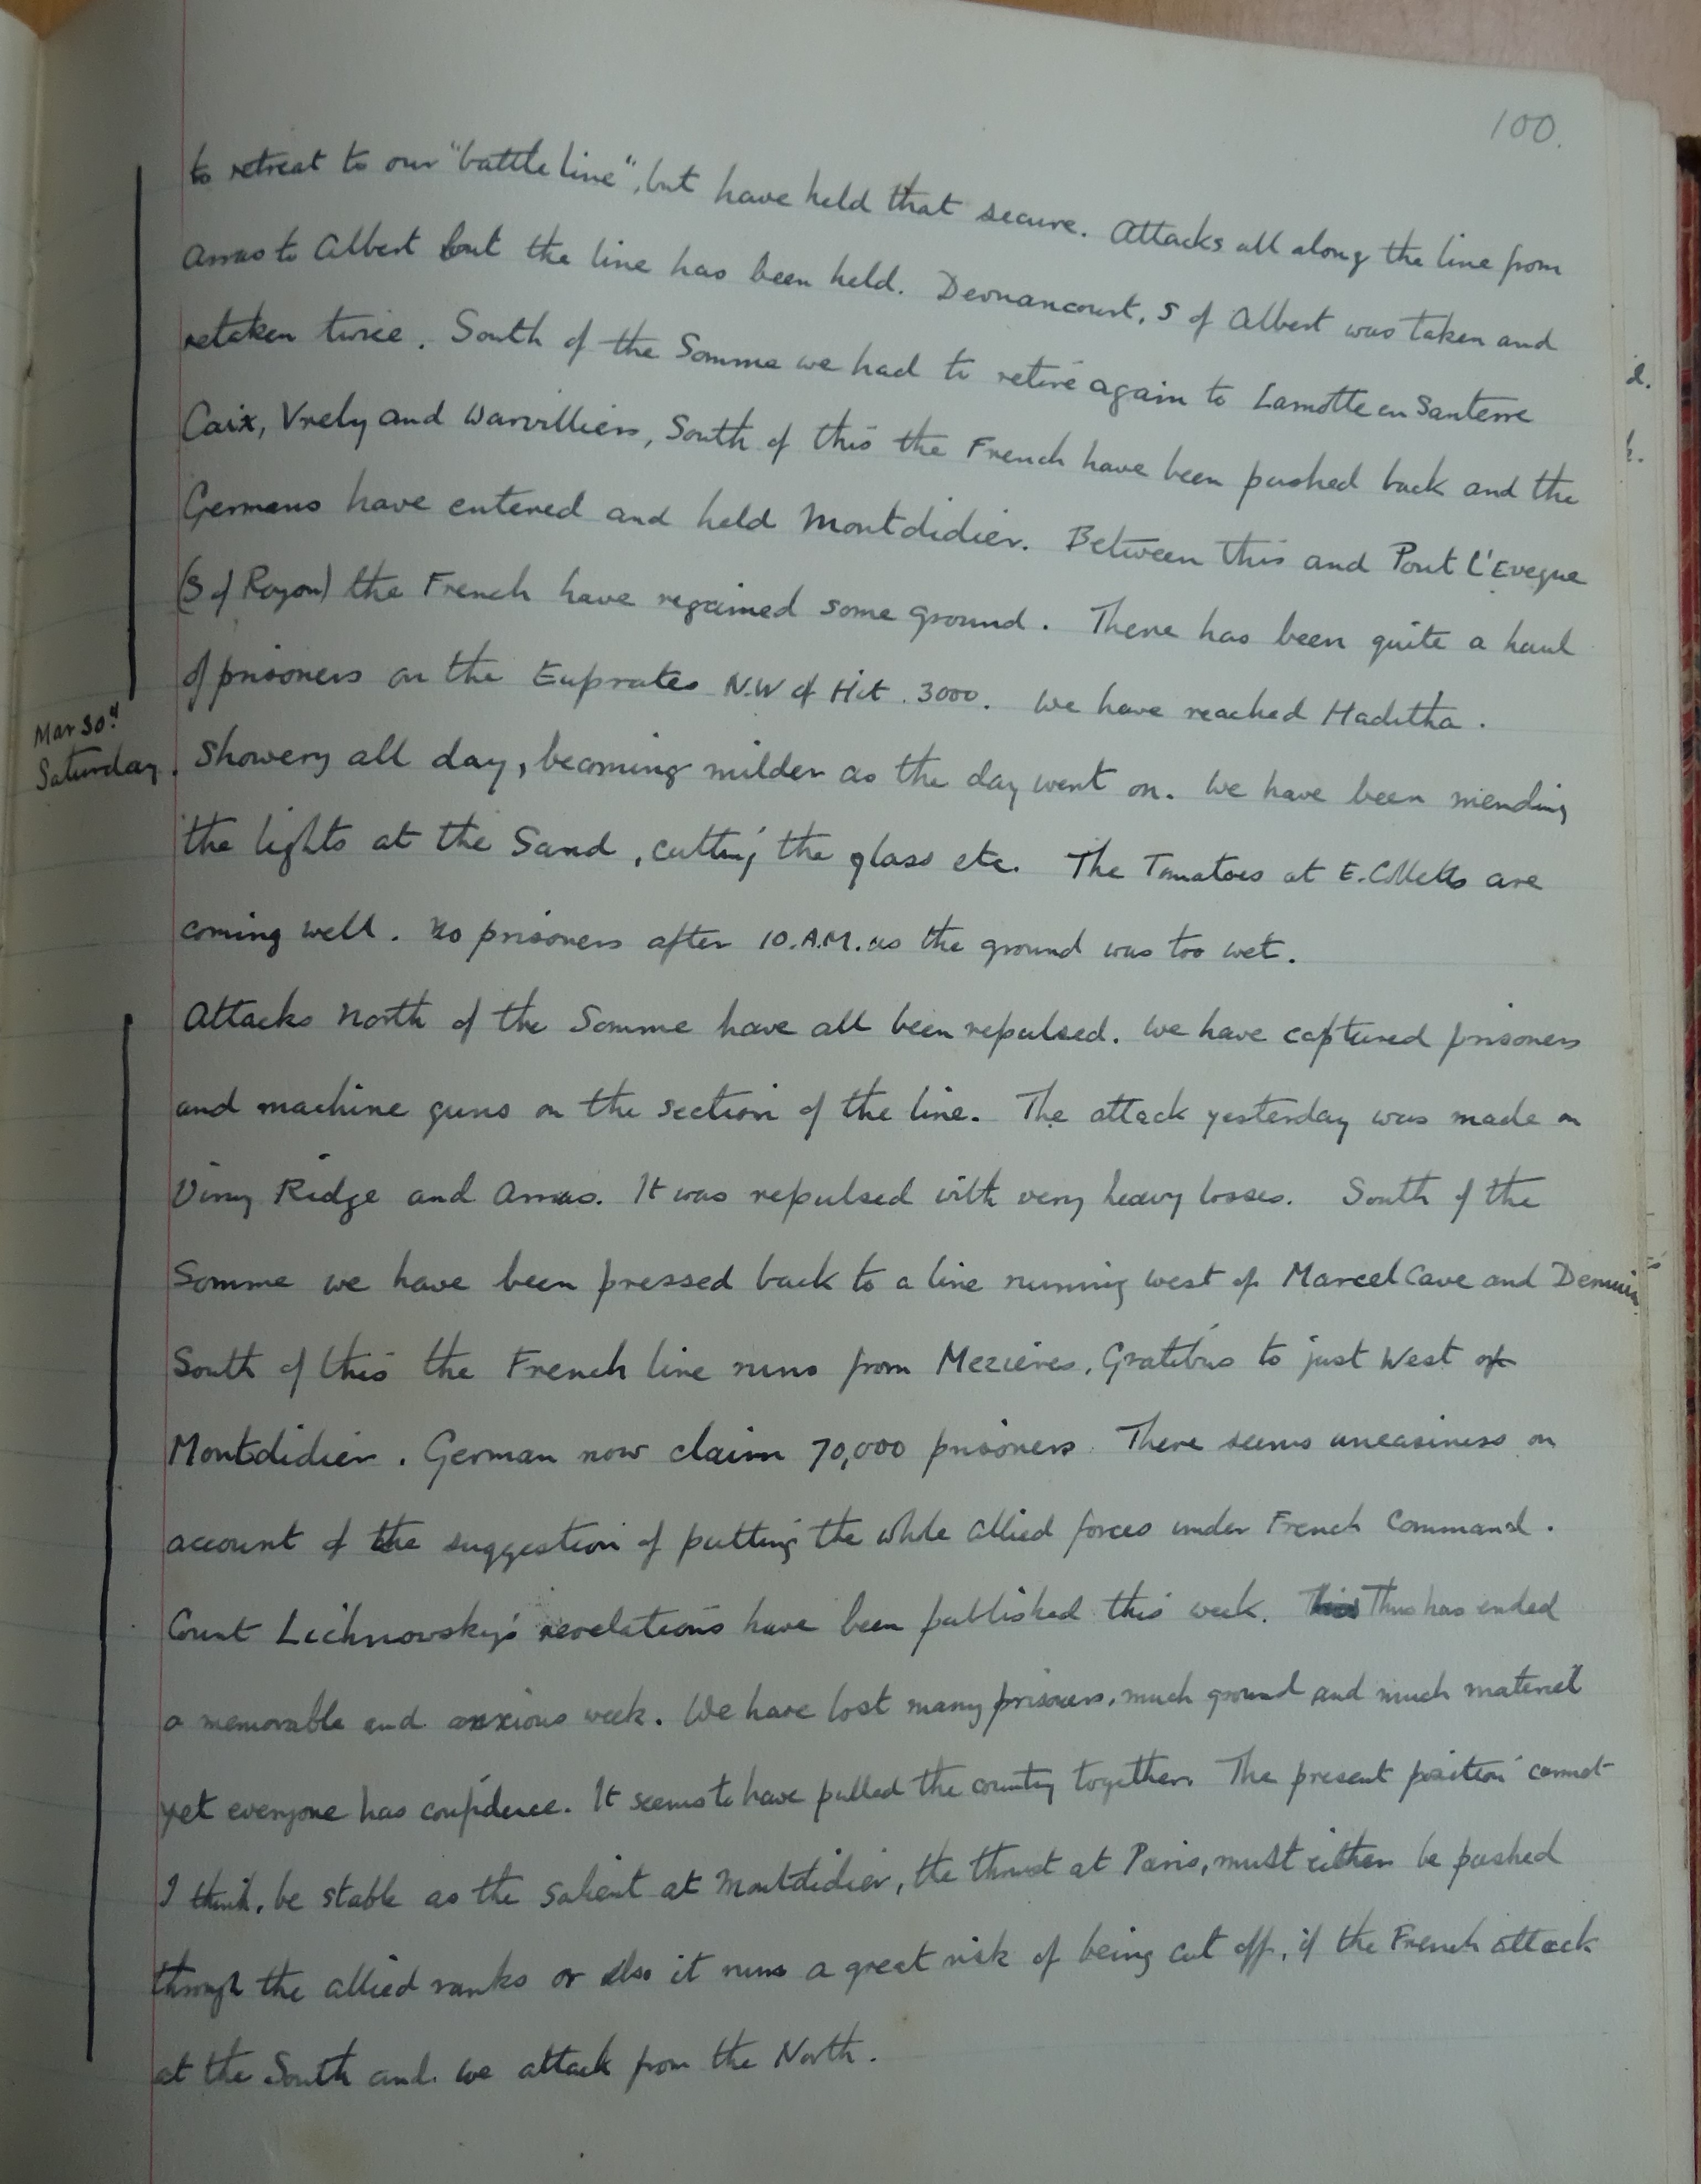 100.
to retreat to our "battle line", but have held that secure. Attacks all along the line from
Arras to Albert but the line has been held. Dernancourt, S of Albert was taken and
retaken twice. South of the Somme we had to retire again to Lamotte en Santerre
Caix, Vrely and Warvilliers, South of this the French have been pushed back and the
Germans have entered and held Montdidier. Between this and Pont L'Eveque
(S of Royon) the French have regained some ground. There has been quite a haul
of prisoners on the Euprates N.W of Hit. 3000. We have reached Haditha.
Mar 30th
Saturday.
Showery all day, becoming milder as the day went on. We have been mending
the lights at the Sand, cutting the glass etc. The Tomatoes at E. Colletts are
coming well. No prisoners after 10.A.M. as the ground was too wet.
Attacks North of the Somme have all been repulsed. We have captured prisoners
and machine guns on the section of the line. The attack yesterday was made on
Vimy Ridge and Arras. It was repulsed with very heavy losses. South of the
Somme we have been pressed back to a line running west of Marcel Cave and Demuin.
South of this the French line runs from Mezieres, Gratibus to just West of
Montdidier. German now claim 70,000 prisoners. There seems uneasiness on
account of the suggestion of putting the whole allied forces under French Command.
Count Lichnowsky's revelations have been published this week. Thus has ended
a memorable and anxious week. We have lost many prisoners, much ground and much material
yet everyone has confidence. It seems to have pulled the country together. The present position cannot
I think, be stable as the salient at Montdidier, the thrust at Paris, must either be pushed
through the allied ranks or else it runs a great risk of being cut off, if the French attack
at the South and we attack from the North.